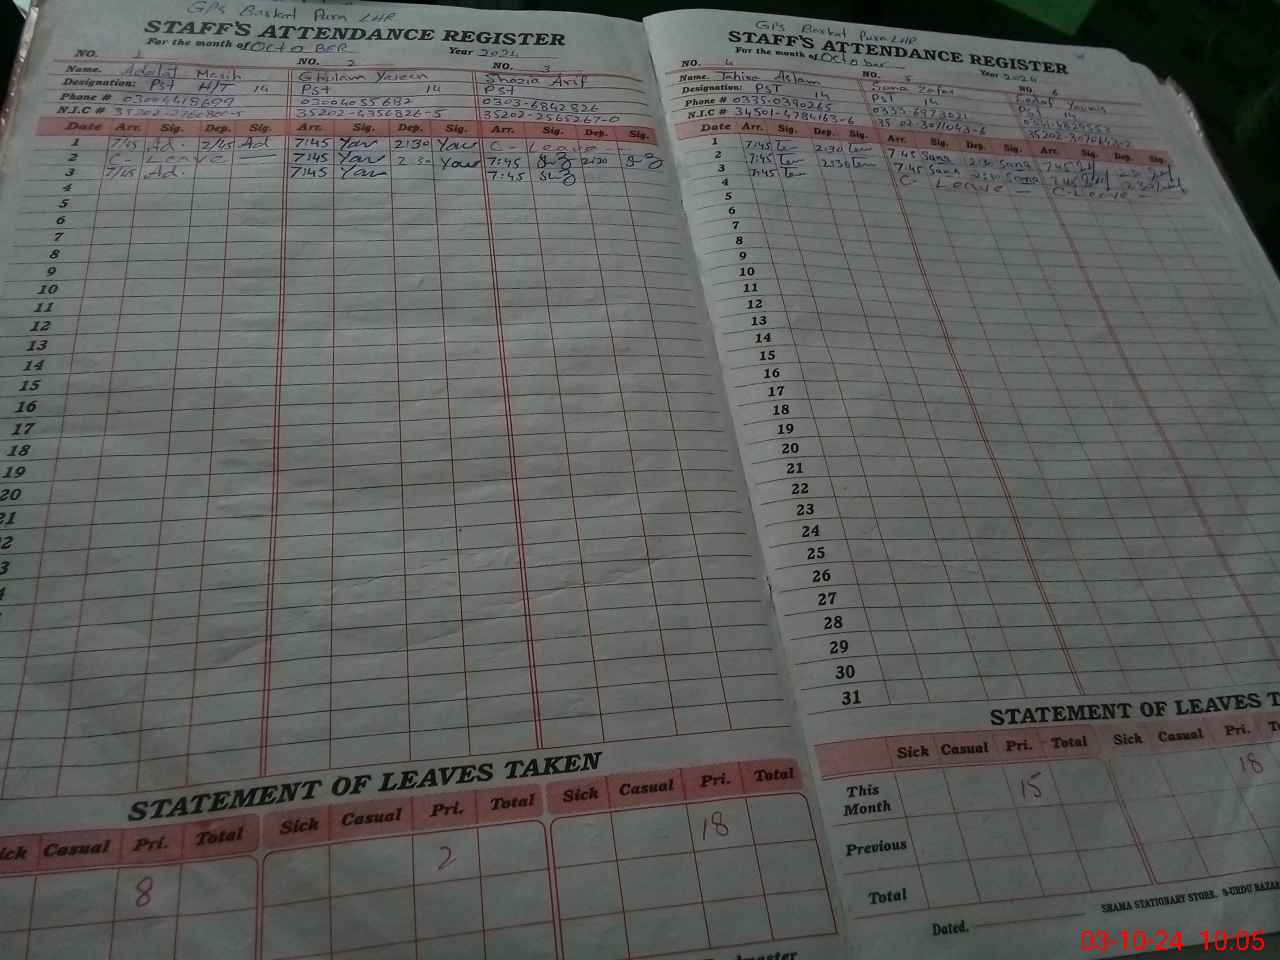 GPS Baskat Pura LHR
STAFF'S ATTENDANCE REGISTER
For the month of OctoBER Year 2024
NO. 1 NO. 2 NO. 3
Name. Adalat Masih Ghulam Yaseen Shazia Arif
Designation: Pst H/T 14 Pst 14 Pst
Phone # 03004055682 0303-6842826
N.I.C # 35202-4356826-5 35202-2565267-0
Date Arr. Sig. Dep. Sig. Arr. Sig. Dep. Sig. Arr. Sig. Dep. Sig.
1 7/45 Ad. 2/45 Ad 7:45 Yar 2:30 Yar C - Leave -
2 C - Leave — 7:45 Yar 2:30 Yar 7:45 2:30
3 7/45 Ad. 7:45 Yar 7:45
4
5
6
7
8
9
10
11
12
13
14
15
16
17
18
19
20
21
2
3
STATEMENT OF LEAVES TAKEN
ick Casual Pri. Total Sick Casual Pri. Total Sick Casual Pri. Total
8 2 18
GPS Baskat Pura LHR
STAFF'S ATTENDANCE REGISTER
For the month of October Year 2024
NO. 4 NO. 5 6
Name. Tahira Aslam Sana Zafar Younis
Designation: PST 14 PST 14 14
Phone # 0335-0390265
N.I.C # 34501-4784163-6
Date Arr. Sig. Dep. Sig. Arr. Sig. Dep. Sig. Arr. Sig. Dep. Sig.
1 7:45 2:30 7:45 Sana 2:30 Sana 7:45
2 7:45 2:30 7:45 Sana 2:30 Sana 7:45 2:30
3 7:45 C - Leave — C - Leave -
4
5
6
7
8
9
10
11
12
13
14
15
16
17
18
19
20
21
22
23
24
25
26
27
28
29
30
31
STATEMENT OF LEAVES T
Sick Casual Pri. Total Sick Casual Pri.
This Month 15 18
Previous
Total
Dated.
SHAMA STATIONARY STORE. 9-URDU BAZAR
03-10-24 10:05